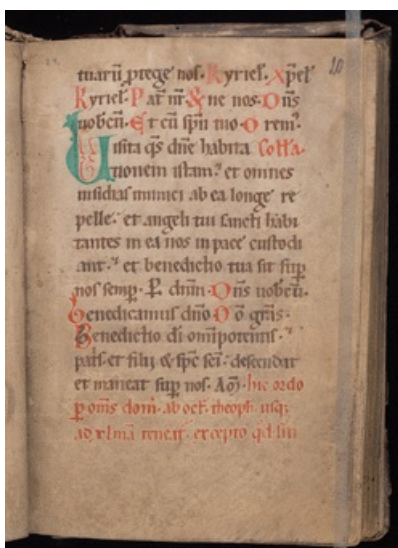 20
tuarū ꝓtege nos. Kyriel. Xpel
Kyriel. Pat nr. & ne nos. Dn̄s
uobcū. Et cū spū tuo. Orem.
Uisita q̄s dn̄e habita Colla.
tionem istam. et omnes
insidias inimici ab ea longe re
pelle. et angeli tui sancti habi
tantes in ea nos in pace custodi
ant. et benedictio tua sit sup
nos semp. P dnm. Dn̄s uobcū.
Benedicamus dn̄o. Dō grās.
Benedictio dī om̄ipotentis.
pat̄s et filii & sp̄c sc̄i. descendat
et maneat sup nos. Am̄. hic ordo
ꝑ om̄s dom̄. ab oct. theoph. usq;
ad xlmā teneat. excepto qd